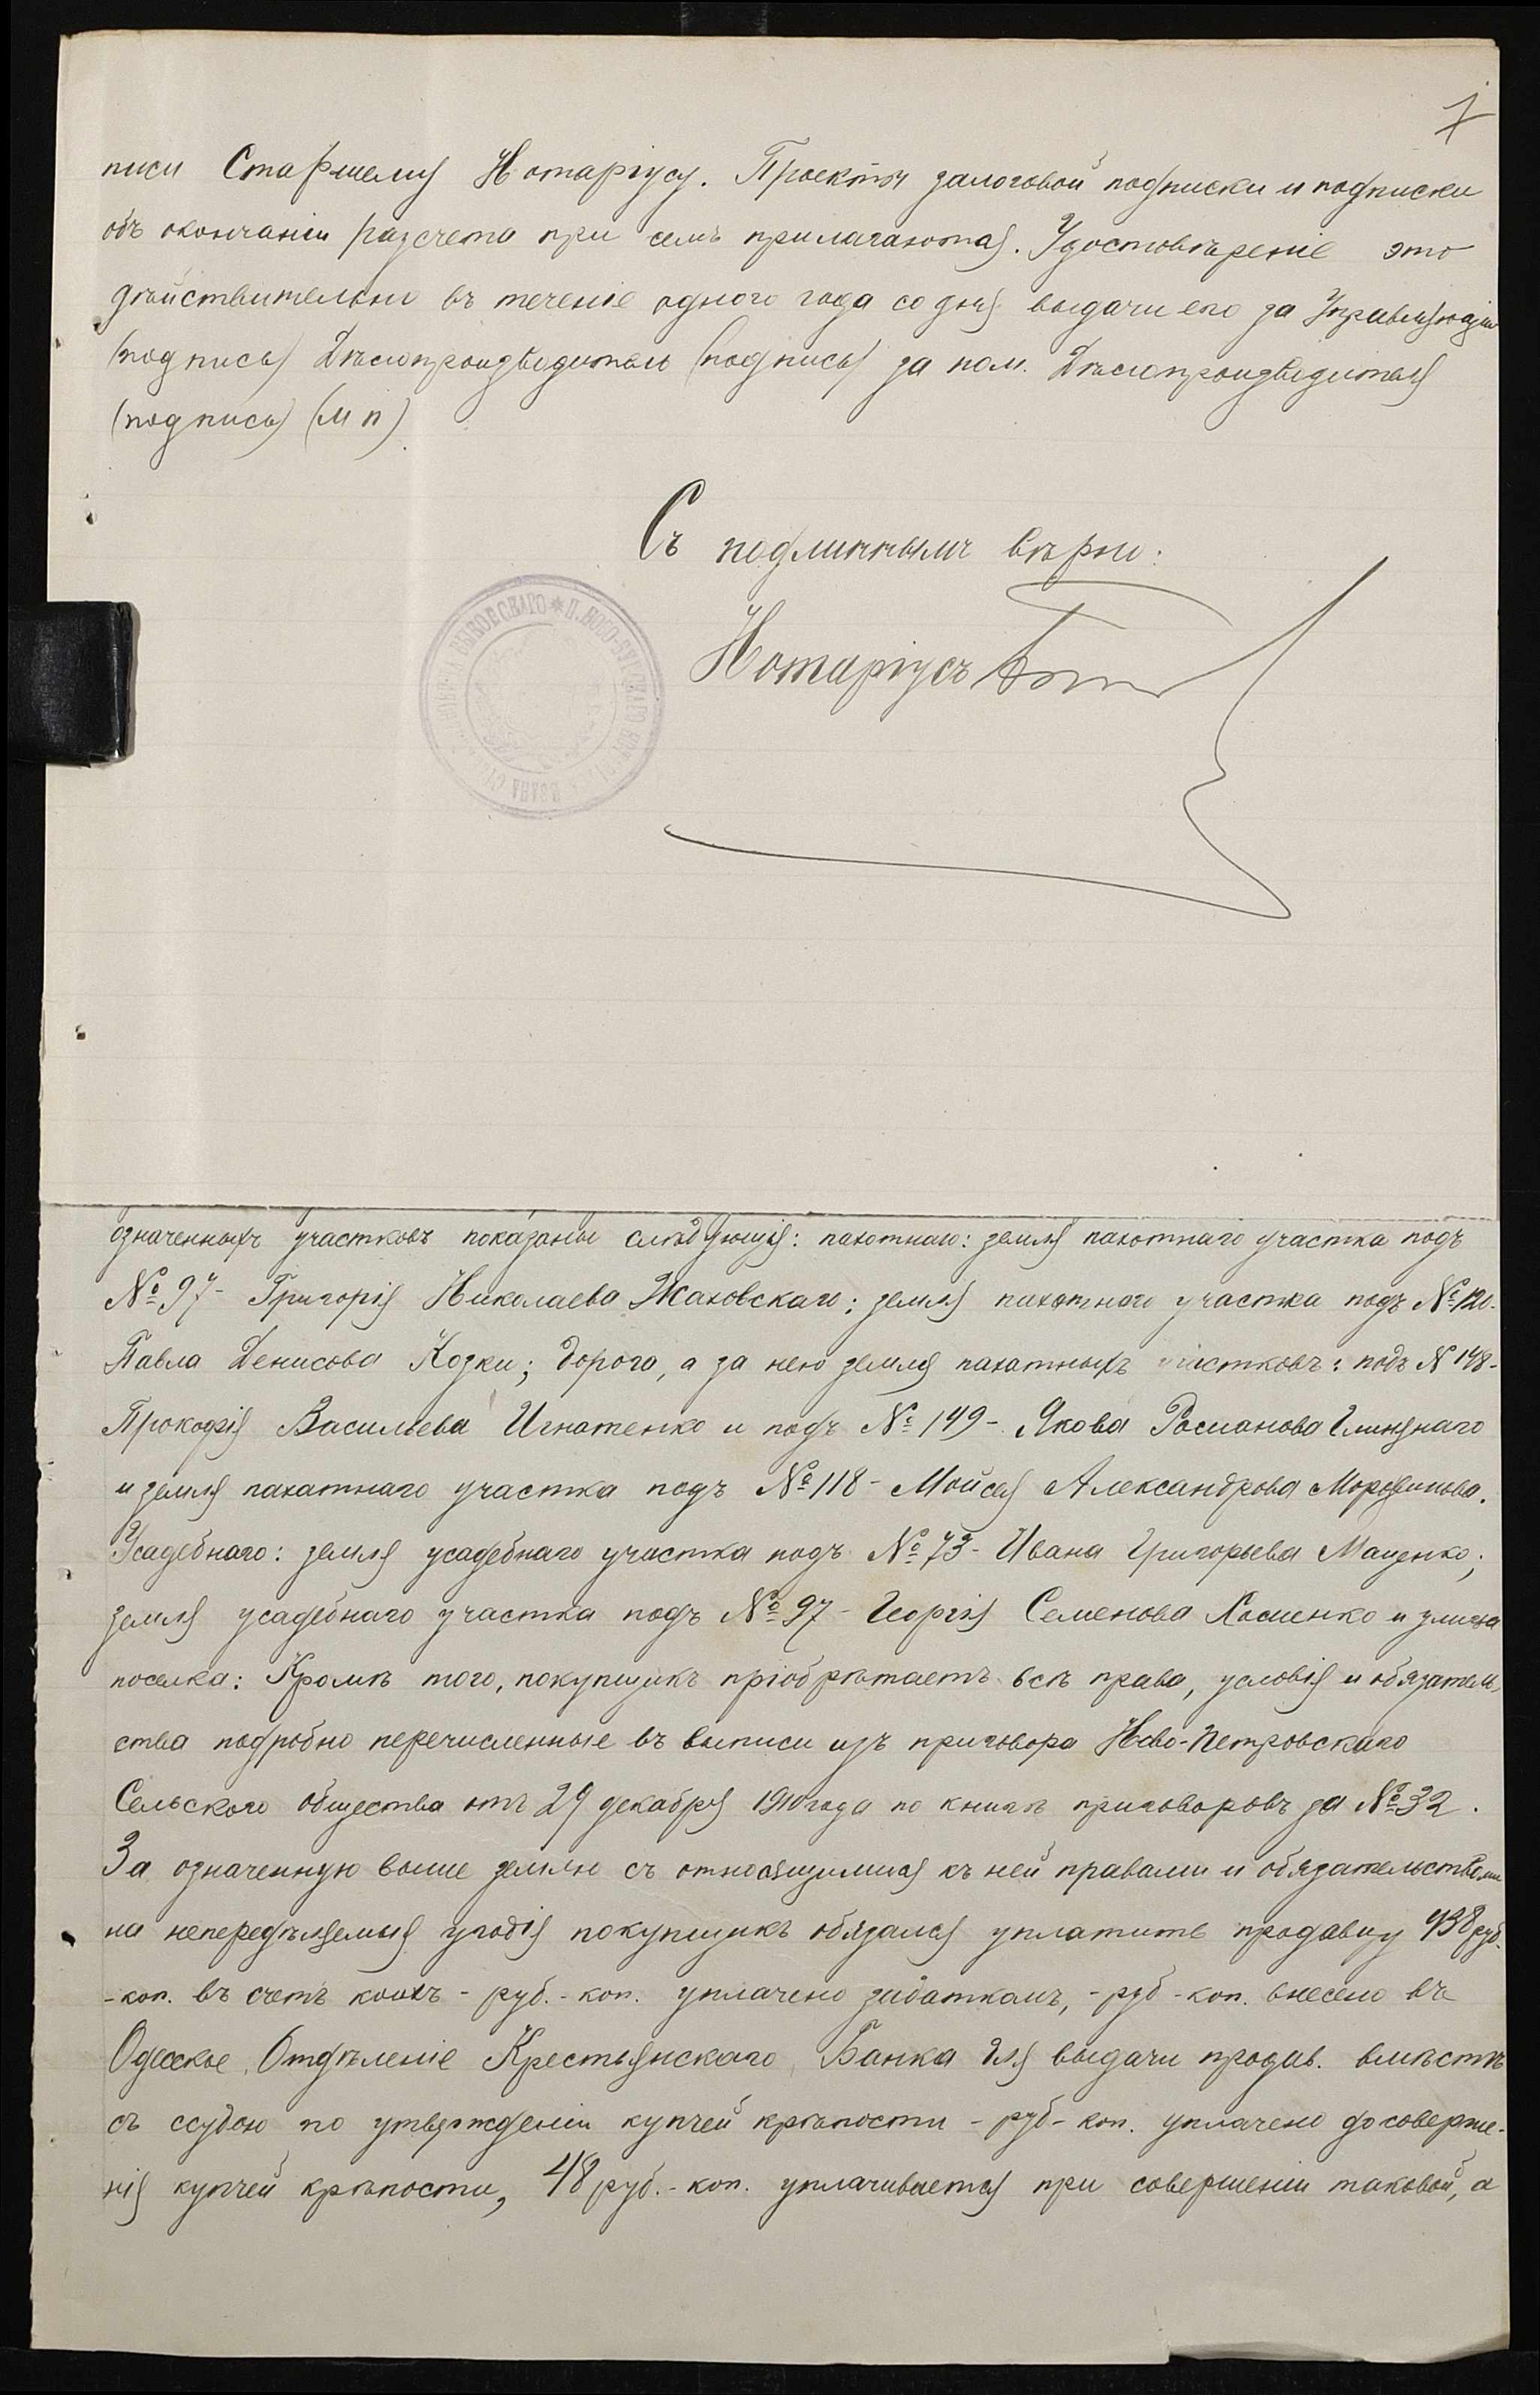 7
писи Старшему Нотаріусу. Проекты залоговой подписки и подписки
объ окончаніи разсчета при семъ прилагаются. Удостовѣреніе это
дѣйствительно въ теченіе одного года со дня выдачи его за Управляющій
(подпись) Дѣлопроизводитель (подпись) за пом. Дѣлопроизводителя
(подпись) (М п).
Съ подлиннымъ вѣрно:
Нотаріусъ
означенныхъ участковъ показаны слѣдующія: пахотнаго: земля пахотнаго участка подъ
№ 97 - Григорія Николаева Жаховскаго; земля пахатнаго участка подъ № 120-
Павла Денисова Козки; дорога, а за нею земля пахатныхъ участковъ: подъ N 148-
Прокофія Васильева Игнатенко и подъ № 149 - Якова Романова Глинянаго
и земля пахатнаго участка подъ № 118 - Мойсея Александрова
Усадебнаго: земля усадебнаго участка подъ № 73 - Ивана Григорьева Маценко;
земля усадебнаго участка подъ № 97 - Георгія Семенова Хоменко и улица
поселка: Кромѣ того, покупщикъ пріобрѣтаетъ всѣ права, условія и обязатель-
ства подробно перечисленные въ выписи изъ приговора Ново-Петровскаго
Сельскаго общества отъ 29 декабря 1910 года по книгѣ приговоровъ за № 32.
За означенную выше землю съ относящимися къ ней правами и обязательствами
на непередѣляемыя угодія покупщикъ обязался уплатить продавцу 938 руб.
- коп. въ счетъ коихъ - руб. - коп. уплачено задаткомъ, - руб - коп. внесено въ
Одесское Отдѣленіе Крестьянскаго Банка для выдачи продав. вмѣстѣ
съ ссудою по утвержденіи купчей крѣпости - руб - коп. уплачено до соверше-
нія купчей крѣпости, 48 руб. - коп. уплачивается при совершеніи таковой, а